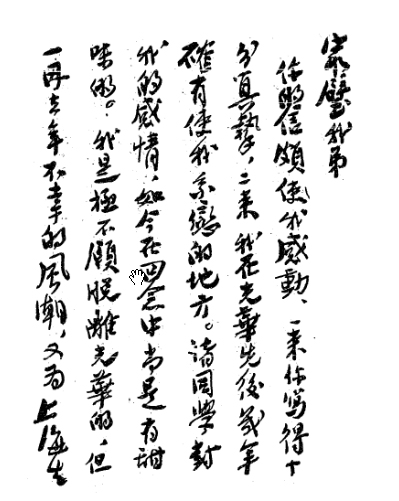 家璧我弟
你的信頗使我感動、一來你寫得十
分真摯，二來我在光華先後幾年
確有使我系戀的地方。諸同學對
我的感情，如今在回念中尚是有甜
味的。我是極不願脫離光華的，但
一去年不幸的風潮，又為上海生